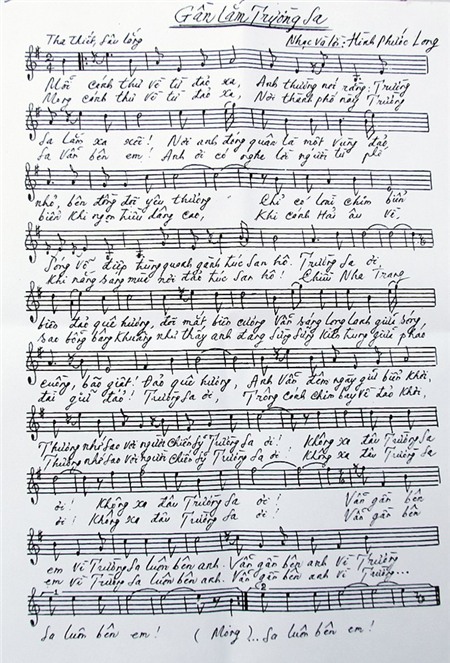 Gần Lắm Trường Sa
Tha thiết, sâu lắng
Nhạc và lời: Hình Phước Long
Mỗi cánh thư về từ đảo xa, Anh thường nói rằng: Trường
Mong cánh thư về từ đảo xa, Nơi thành phố này Trường
Sa lắm xa xôi! Nơi anh đóng quân là một vùng đảo
Sa vẫn bên em! Anh ơi có nghe lời người từ phố
nhỏ, bên đồng đội yêu thương Chỉ có loài chim biển
biển khi ngọn triều dâng cao, Khi cánh Hải âu về.
Sóng vỗ điệp trùng quanh gành trúc san hô. Trường Sa ơi,
Khi nắng sang mùa nơi đảo trúc san hô! Chiều Nha Trang
biển đảo quê hương, đôi mắt biên cương Vẫn sáng long lanh giữa sóng
sao bỗng bâng khuâng như thấy anh đang sừng sững kiêu hùng giữa pháo
cuồng, bão giật! Đảo quê hương, Anh vẫn đêm ngày giữ biển khơi,
đài giữ đảo! Trường Sa ơi, Trông cánh chim bay về đảo khơi,
Thương nhớ sao với người Chiến sỹ Trường Sa ơi! Không xa đâu Trường Sa
Thương nhớ sao với người Chiến sỹ Trường Sa ơi! Không xa đâu Trường Sa
ơi! Không xa đâu Trường Sa ơi! Vẫn gần bên
ơi! Không xa đâu Trường Sa ơi! Vẫn gần bên
em vì Trường Sa luôn bên anh. Vẫn gần bên anh vì Trường
em vì Trường Sa luôn bên anh. Vẫn gần bên anh vì Trường...
1 2
Sa luôn bên em! (Mong)... Sa luôn bên em!